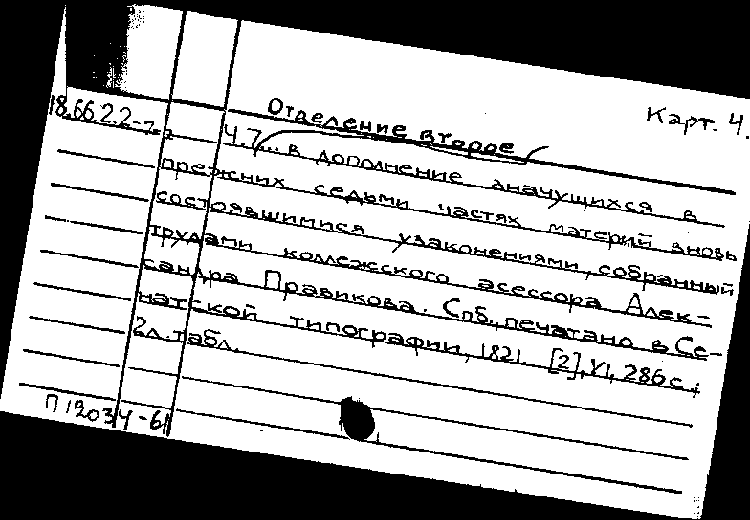 Карт. 4.
Отделение второе
18.66.2.2-7.2
Ч.7... в дополнение значущихся в
прежних седьми частях материй вновь
состоявшимися узаконениями, собранный
трудами коллежского асессора Алек-
сандра Правикова. Спб., печатано в Се-
натской типографии, 1821. [2], VI, 286 с.,
2 л. табл.
П 12034-61